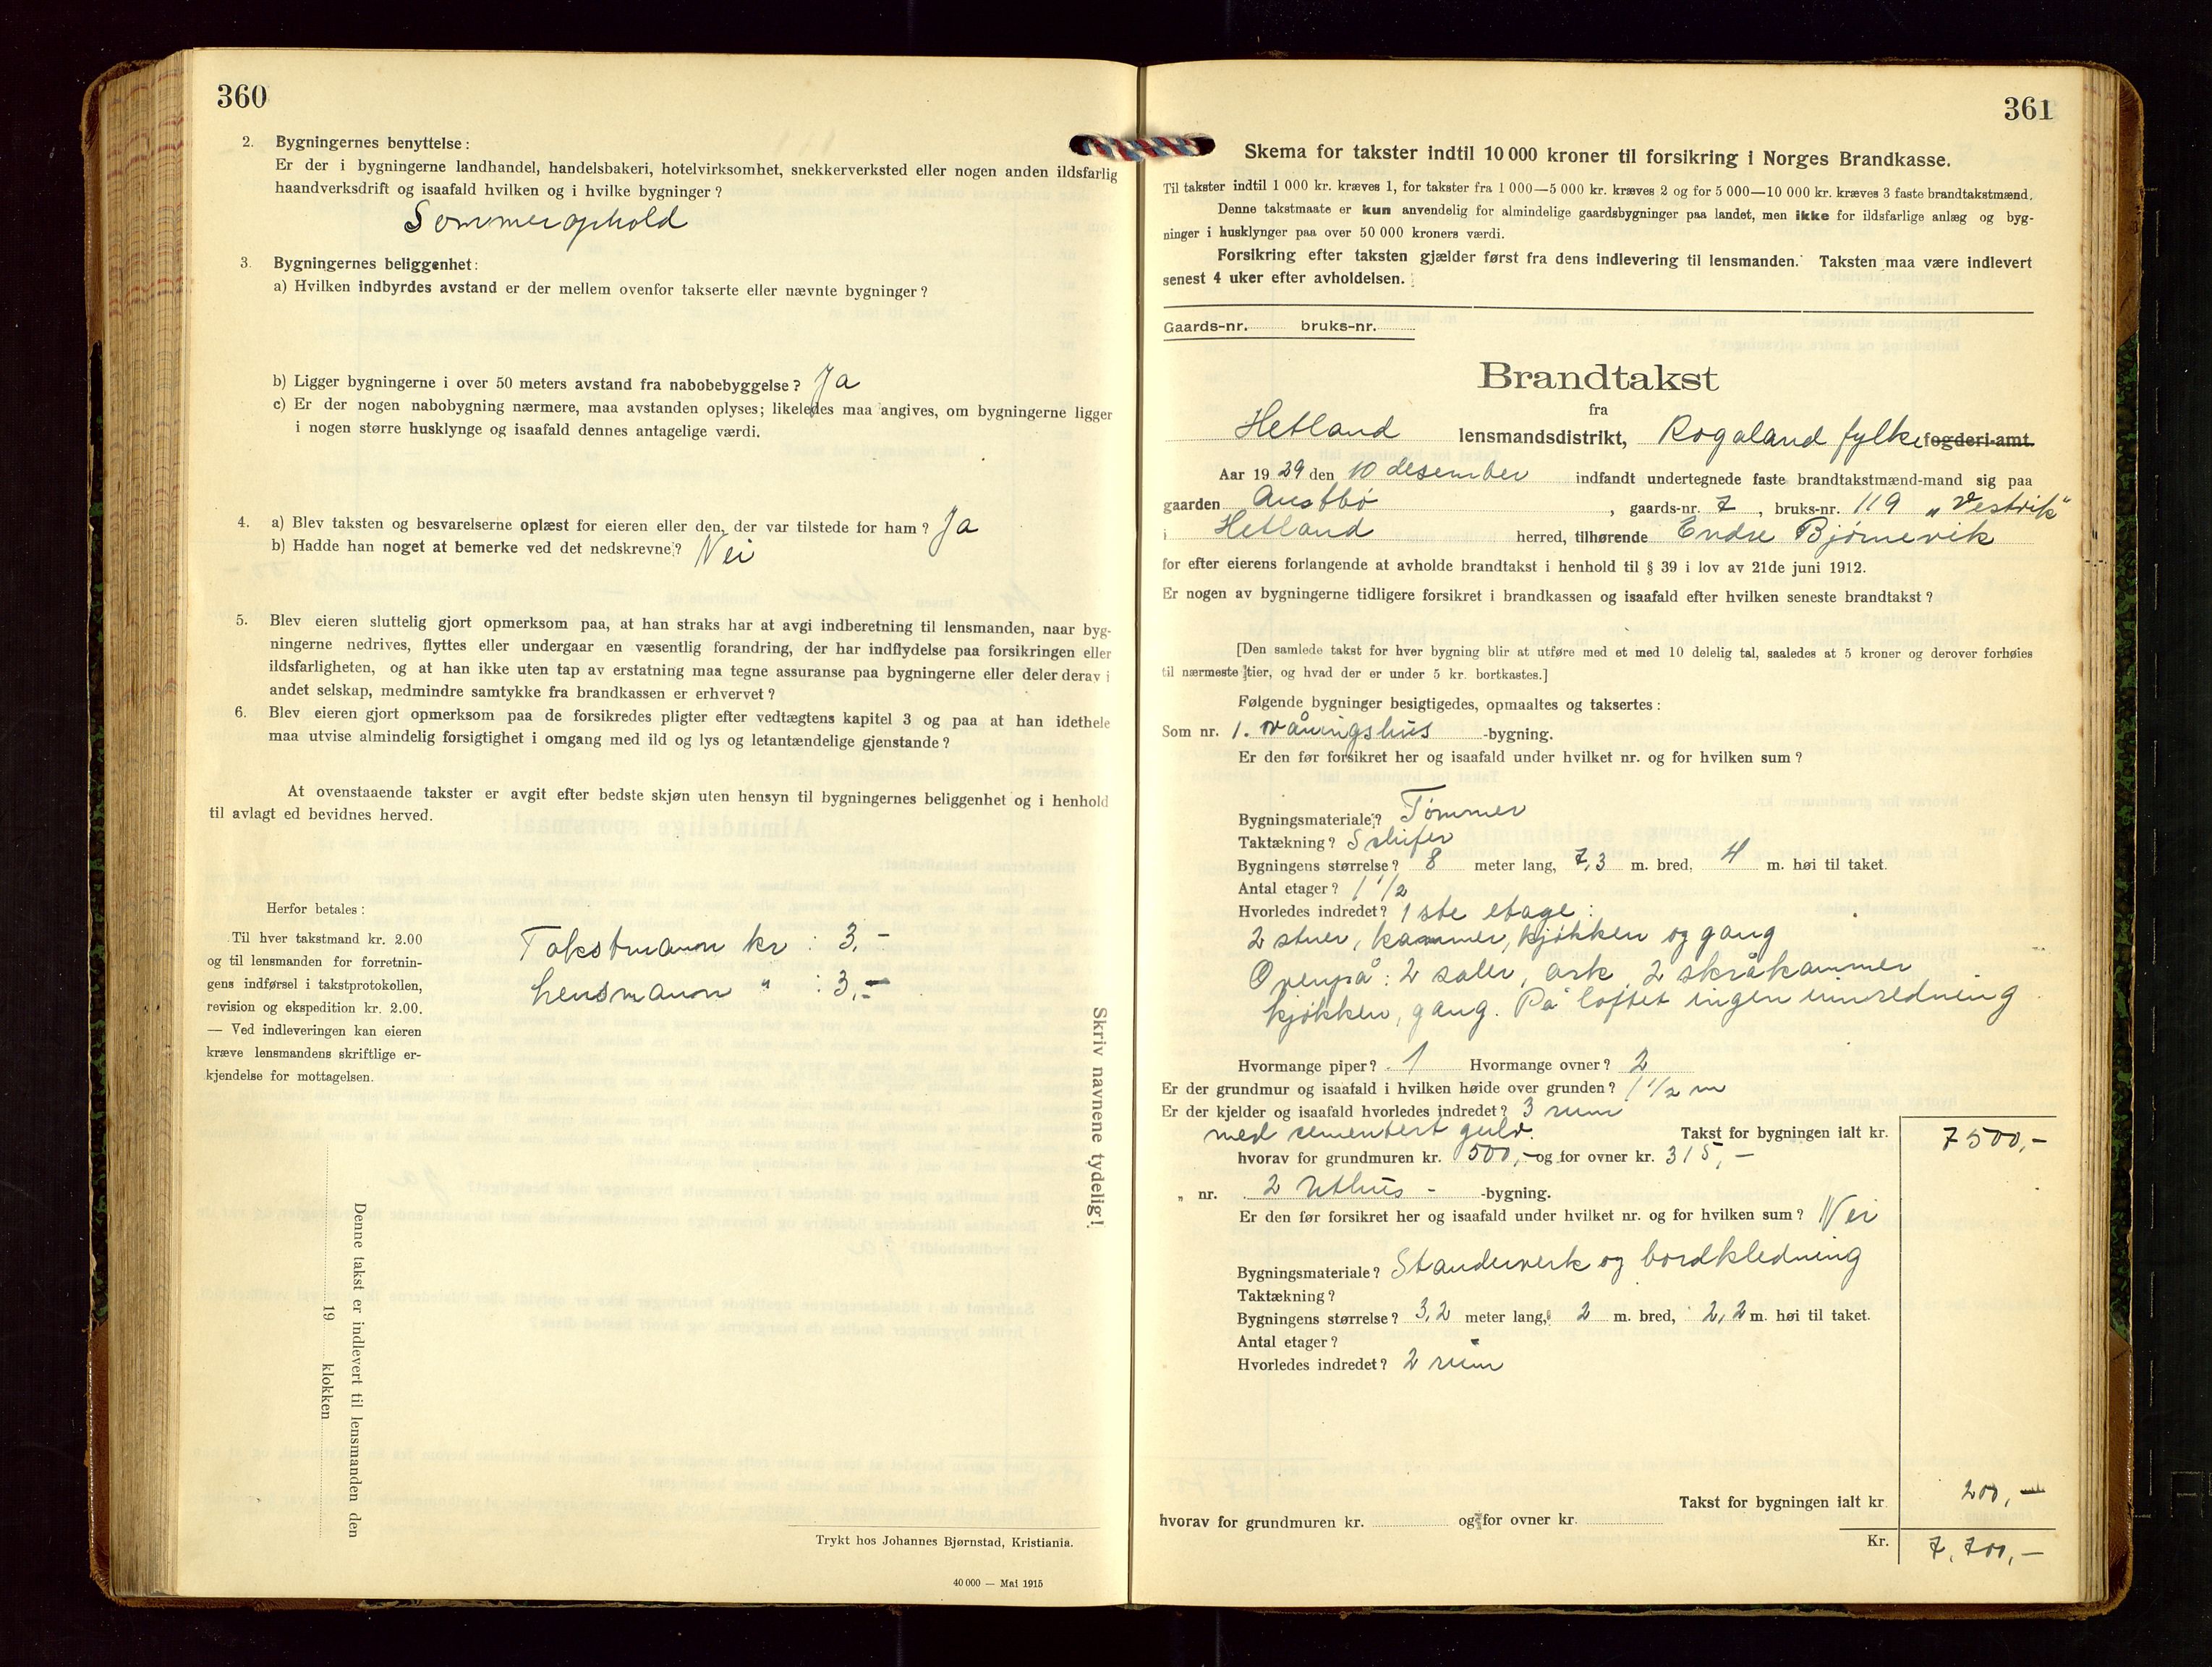 360
2. Bygningernes benyttelse:
Er der i bygningerne landhandel, handelsbakeri, hotelvirksomhet, snekkerverksted eller nogen anden ildsfarlig
haandverksdrift og isaafald hvilken og i hvilke bygninger?
Sommerophold
3. Bygningernes beliggenhet:
a) Hvilken indbyrdes avstand er der mellem ovenfor takserte eller nævnte bygninger?
b) Ligger bygningerne i over 50 meters avstand fra nabobebyggelse? Ja
c) Er der nogen nabobygning nærmere, maa avstanden oplyses; likeledes maa angives, om bygningerne ligger
i nogen større husklynge og isaafald dennes antagelige værdi.
4. a) Blev taksten og besvarelserne oplæst for eieren eller den, der var tilstede for ham? Ja
b) Hadde han noget at bemerke ved det nedskrevne? Nei
5. Blev eieren sluttelig gjort opmerksom paa, at han straks har at avgi indberetning til lensmanden, naar byg-
ningerne nedrives, flyttes eller undergaar en væsentlig forandring, der har indflydelse paa forsikringen eller
ildsfarligheten, og at han ikke uten tap av erstatning maa tegne assuranse paa bygningerne eller deler derav i
andet selskap, medmindre samtykke fra brandkassen er erhvervet?
6. Blev eieren gjort opmerksom paa de forsikredes pligter efter vedtægtens kapitel 3 og paa at han idethele
maa utvise almindelig forsigtighet i omgang med ild og lys og letantændelige gjenstande?
At ovenstaaende takster er avgit efter bedste skjøn uten hensyn til bygningernes beliggenhet og i henhold
til avlagt ed bevidnes herved.
Herfor betales:
Til hver takstmand kr. 2.00
og til lensmanden for forretnin-
gens indførsel i takstprotokollen,
revision og ekspedition kr. 2.00.
— Ved indleveringen kan eieren
kræve lensmandens skriftlige er-
kjendelse for mottagelsen.
Takstmann kr : 3,-
Lensmann " : 3,-
Skriv navnene tydelig!
Denne takst er indlevert til lensmanden den
19 klokken
Trykt hos Johannes Bjørnstad, Kristiania.
40 000 — Mai 1915
361
Skema for takster indtil 10 000 kroner til forsikring i Norges Brandkasse.
Til takster indtil 1 000 kr. kræves 1, for takster fra 1 000—5 000 kr. kræves 2 og for 5 000—10 000 kr. kræves 3 faste brandtakstmænd.
Denne takstmaate er kun anvendelig for almindelige gaardsbygninger paa landet, men ikke for ildsfarlige anlæg og byg-
ninger i husklynger paa over 50 000 kroners værdi.
Forsikring efter taksten gjælder først fra dens indlevering til lensmanden. Taksten maa være indlevert
senest 4 uker efter avholdelsen.
Gaards-nr. bruks-nr.
Brandtakst
fra
Hetland lensmandsdistrikt, Rogaland fylke fogderi-amt.
Aar 1929 den 10 desember indfandt undertegnede faste brandtakstmænd-mand sig paa
gaarden Austbø, gaards-nr. 7, bruks-nr. 119 "Vestvik"
i Hetland herred, tilhørende Endre Bjørnevik
for efter eierens forlangende at avholde brandtakst i henhold til § 39 i lov av 21de juni 1912.
Er nogen av bygningerne tidligere forsikret i brandkassen og isaafald efter hvilken seneste brandtakst?
[Den samlede takst for hver bygning blir at utføre med et med 10 delelig tal, saaledes at 5 kroner og derover forhøies
til nærmeste tier, og hvad der er under 5 kr. bortkastes.]
Følgende bygninger besigtigedes, opmaaltes og taksertes:
Som nr. 1. våningshus -bygning.
Er den før forsikret her og isaafald under hvilket nr. og for hvilken sum?
Bygningsmateriale? Tømmer
Taktækning? Skifer
Bygningens størrelse? 8 meter lang, 7,3 m. bred, 4 m. høi til taket.
Antal etager? 1 1/2
Hvorledes indredet? 1ste etage:
2 stuer, kammer, kjøkken og gang
Ovenpå: 2 saler, ark, 2 skråkammer
kjøkken, gang. På loftet ingen innredning
Hvormange piper? 1 Hvormange ovner? 2
Er der grundmur og isaafald i hvilken høide over grunden? 1 1/2 m
Er der kjelder og isaafald hvorledes indredet? 3 rum
med cementert gulv. Takst for bygningen ialt kr. 7500,-
hvorav for grundmuren kr. 500,- og for ovner kr. 315,-
„ nr. 2 Uthus - -bygning.
Er den før forsikret her og isaafald under hvilket nr. og for hvilken sum? Nei
Bygningsmateriale? Standerverk og bordkledning
Taktækning?
Bygningens størrelse? 3,2 meter lang, 2 m. bred, 2,2 m. høi til taket.
Antal etager? -
Hvorledes indredet? 2 rum
Takst for bygningen ialt kr. 200,-
hvorav for grundmuren kr. og for ovner kr.
Kr. 7,700,-